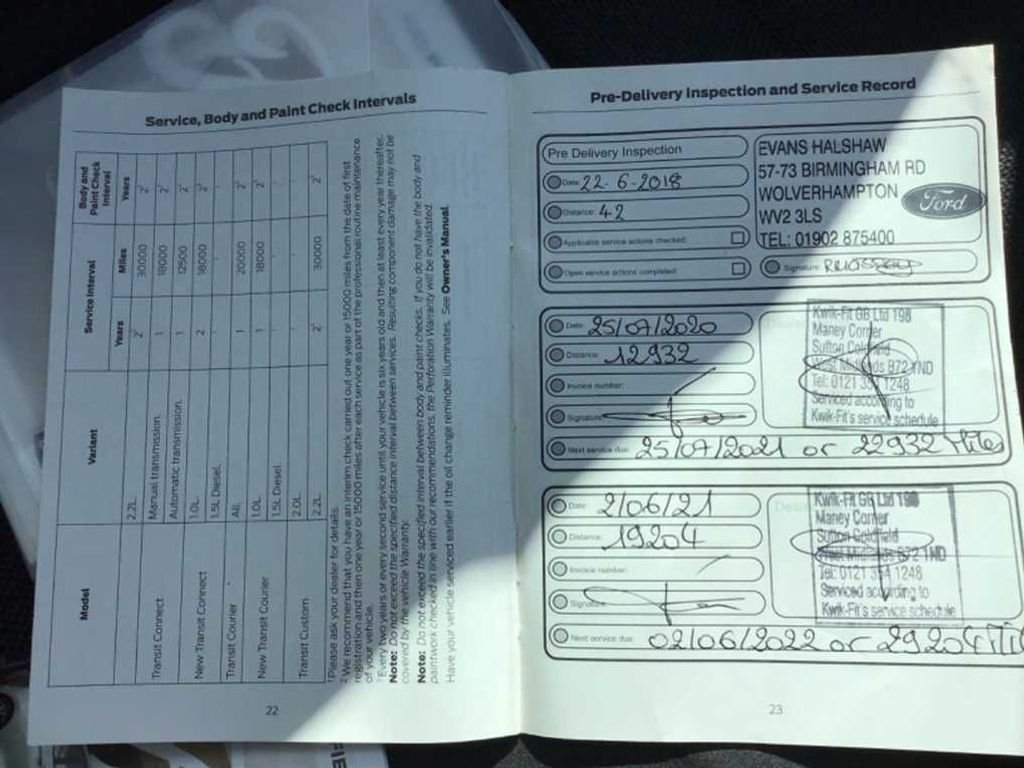 Service, Body and Paint Check Intervals
Model Variant Service Interval Body and Paint Check Interval
Years Miles Years
2.2L 2² 30000 2³
Transit Connect Manual transmission. 1 18000 2³
Automatic transmission. 1 12500 2³
New Transit Connect 1.0L 2 18000 2³
1.5L Diesel. - - -
Transit Courier All. 1 20000 2³
New Transit Courier 1.0L 1 18000 2³
1.5L Diesel. - - -
Transit Custom 2.0L - - -
2.2L 2² 30000 2³
¹ Please ask your dealer for details.
² We recommend that you have an interim check carried out one year or 15000 miles from the date of first
registration and then one year or 15000 miles after each service as part of the professional routine maintenance
of your vehicle.
³ Every two years or every second service until your vehicle is six years old and then at least every year thereafter.
Note: Do not exceed the specified distance interval between services. Resulting component damage may not be
covered by the vehicle Warranty.
Note: Do not exceed the specified interval between body and paint checks. If you do not have the body and
paintwork checked in line with our recommendations, the Perforation Warranty will be invalidated.
Have your vehicle serviced earlier if the oil change reminder illuminates. See Owner's Manual.
22
Pre-Delivery Inspection and Service Record
Pre Delivery Inspection
Date: 22-6-2018
Distance: 42
Applicable service actions checked:
Open service actions completed:
EVANS HALSHAW
57-73 BIRMINGHAM RD
WOLVERHAMPTON
WV2 3LS
TEL: 01902 875400
Ford
Signature:
Date: 25/07/2020
Distance: 12932
Invoice number:
Signature:
Next service due: 25/07/2021 or 22932 Miles
Kwik-Fit GB Ltd 198
Maney Corner
Sutton Coldfield
West Midlands B72 1ND
Tel: 0121 354 1248
Serviced according to
Kwik-Fit's service schedule
Date: 2/06/21
Distance: 19204
Invoice number:
Signature:
Next service due: 02/06/2022 or 29204 Mil
Kwik-Fit GB Ltd 198
Maney Corner
Sutton Coldfield
West Midlands B72 1ND
Tel: 0121 354 1248
Serviced according to
Kwik-Fit's service schedule
23